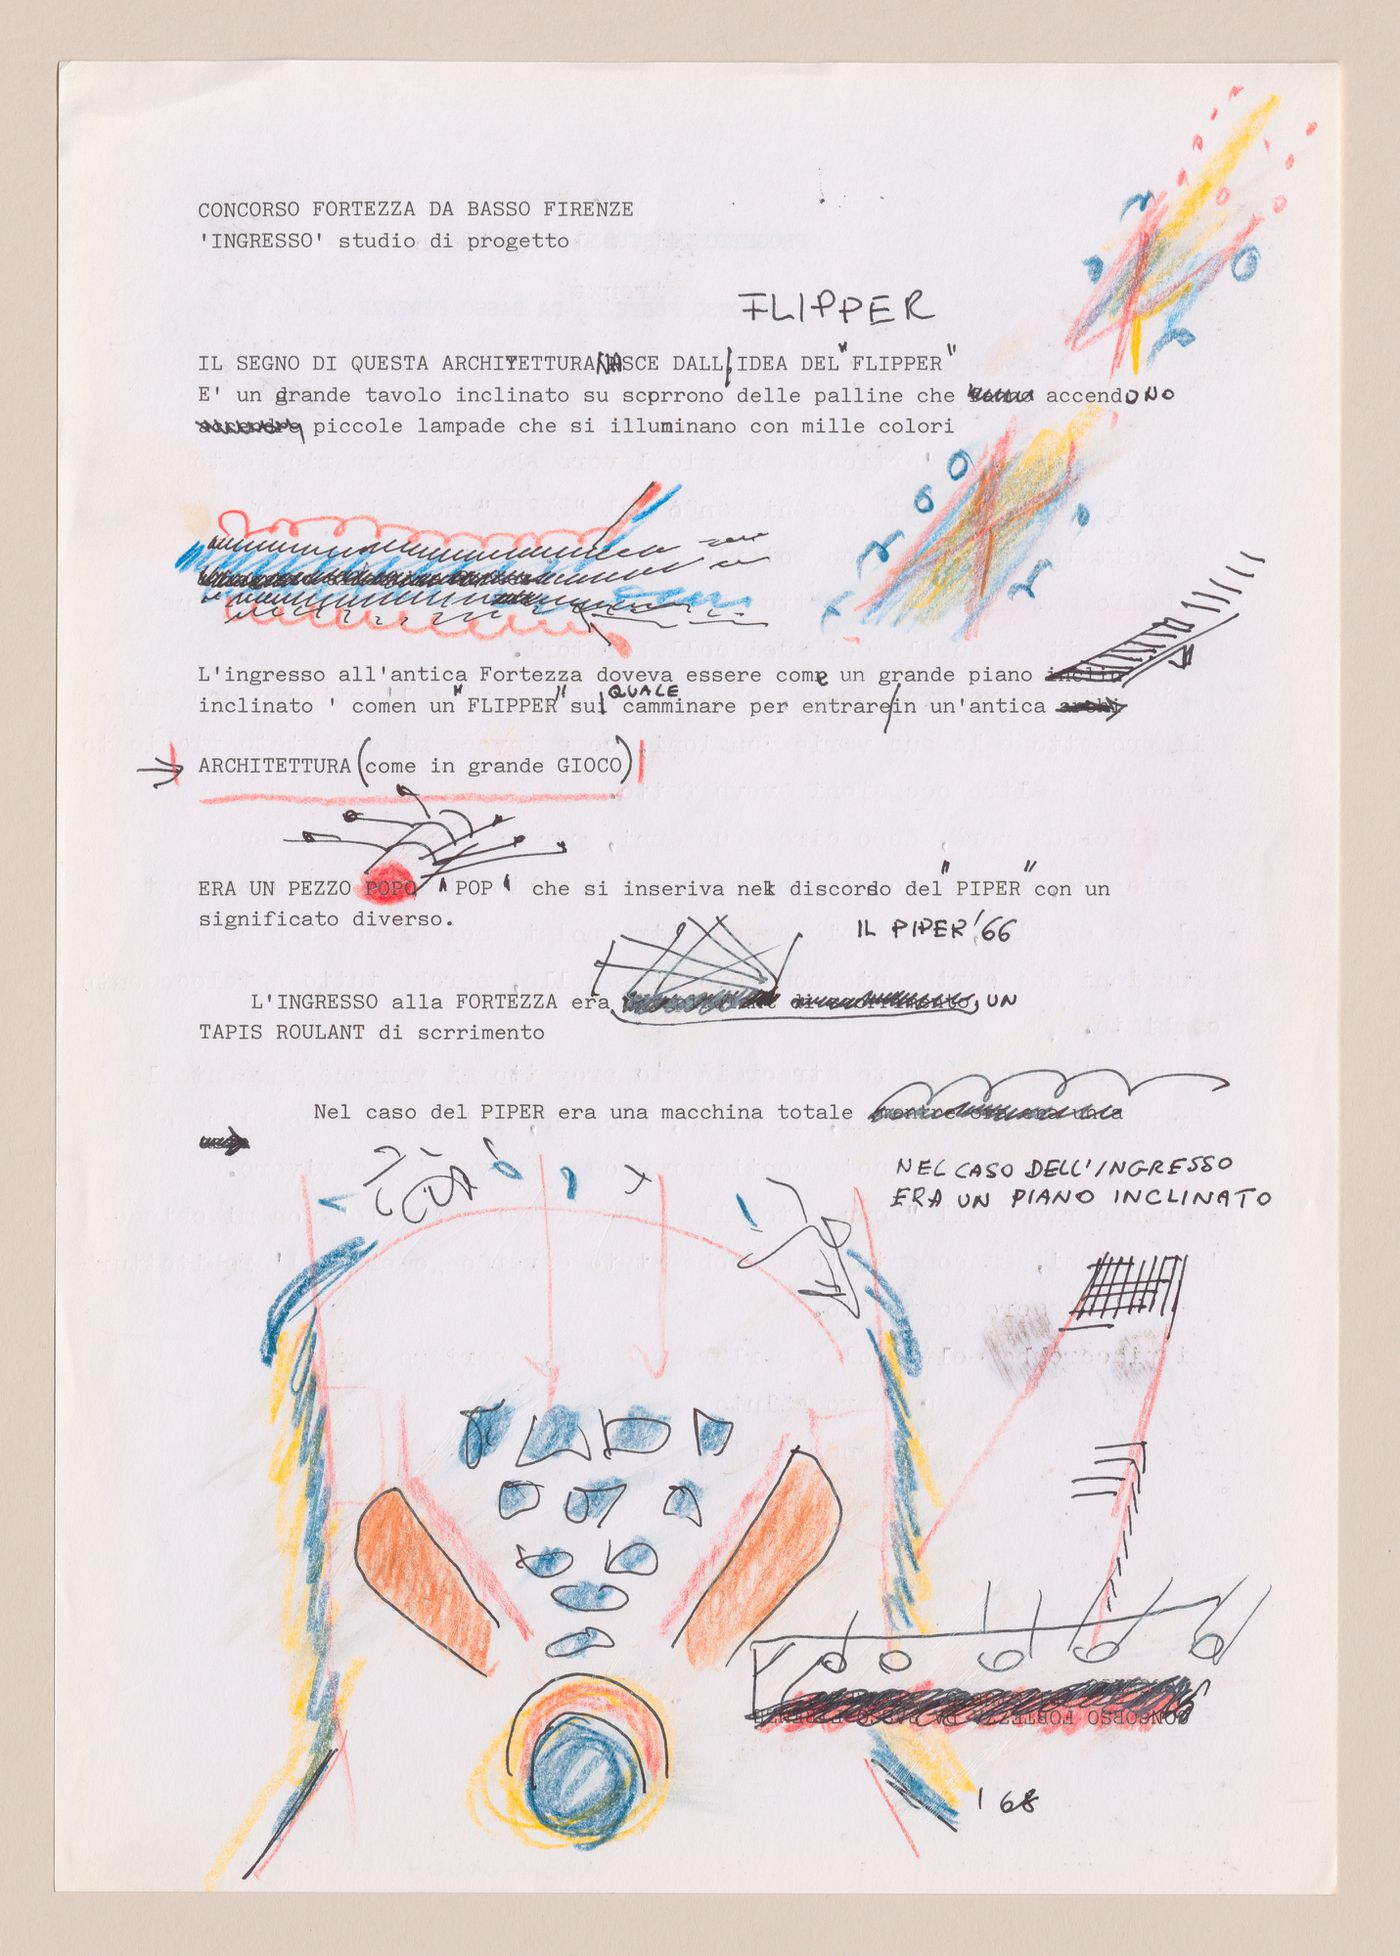 CONCORSO FORTEZZA DA BASSO FIRENZE
'INGRESSO' studio di progetto
FLIPPER
IL SEGNO DI QUESTA ARCHITETTURA NASCE DALL'IDEA DEL "FLIPPER"
E' un grande tavolo inclinato su scorrono delle palline che accendONO
piccole lampade che si illuminano con mille colori
L'ingresso all'antica Fortezza doveva essere come un grande piano inclin
inclinato ' comen un "FLIPPER" sul QUALE camminare per entrare/in un'antica archi
ARCHITETTURA (come in grande GIOCO)
ERA UN PEZZO POPO 'POP' che si inseriva nel discorso del "PIPER" con un
significato diverso.
IL PIPER '66
L'INGRESSO alla FORTEZZA era UN
TAPIS ROULANT di scrrimento
Nel caso del PIPER era una macchina totale
NEL CASO DELL'INGRESSO
ERA UN PIANO INCLINATO
CONCORSO FORTEZZA DA BASSO FIRENZE
'68